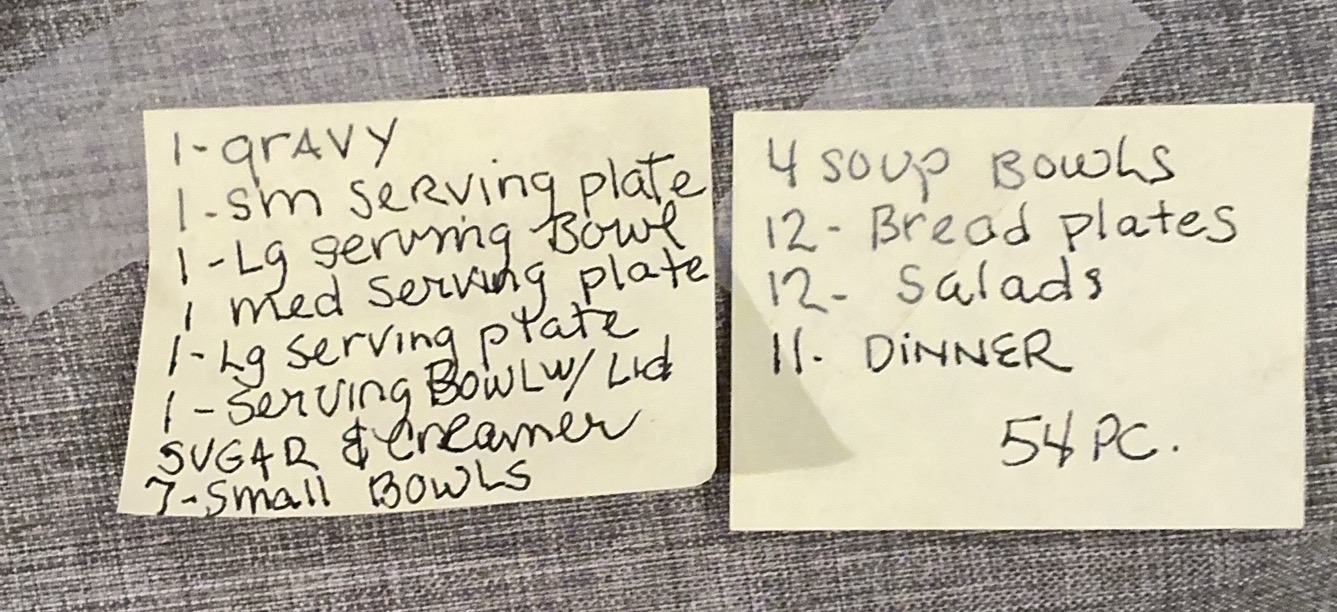 1-grAVY
1-sm SERVing plate
1-Lg serving Bowl
1 med Serving plate
1-Lg Serving plate
1-Serving BOWL W/ Lid
SUGAR & Creamer
7-Small BOWLS
4 SOUP BOWLS
12- Bread plates
12- Salads
11. DiNNER
54 PC.